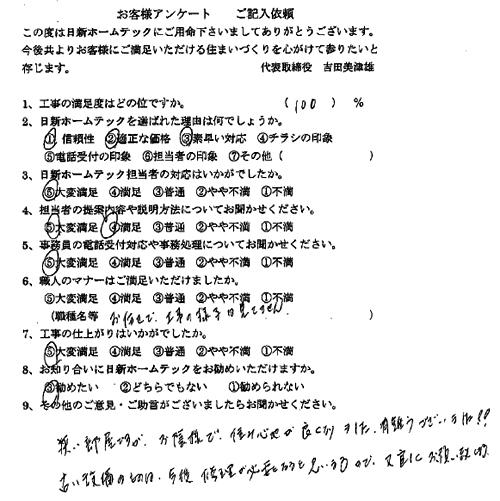 お客様アンケート　ご記入依頼
この度は日新ホームテックにご用命下さいましてありがとうございます。
今後共よりお客様にご満足いただける住まいづくりを心がけて参りたいと
存じます。　代表取締役　吉田美津雄
1、工事の満足度はどの位ですか。　（ 100 ）％
2、日新ホームテックを選ばれた理由は何でしょうか。
①信頼性　②適正な価格　③素早い対応　④チラシの印象
⑤電話受付の印象　⑥担当者の印象　⑦その他（　）
3、日新ホームテック担当者の対応はいかがでしたか。
⑤大変満足　④満足　③普通　②やや不満　①不満
4、担当者の提案内容や説明方法についてお聞かせください。
⑤大変満足　④満足　③普通　②やや不満　①不満
5、事務員の電話受付対応や事務処理についてお聞かせください。
⑤大変満足　④満足　③普通　②やや不満　①不満
6、職人のマナーはご満足いただけましたか。
⑤大変満足　④満足　③普通　②やや不満　①不満
（職種名等　お任せで、工事の様子は見てません　）
7、工事の仕上がりはいかがでしたか。
⑤大変満足　④満足　③普通　②やや不満　①不満
8、お知り合いに日新ホームテックをお勧めいただけますか。
③勧めたい　②どちらでもない　①勧められない
9、その他のご意見・ご助言がございましたらお聞かせください。
狭い部屋ですが、お蔭様で、住み心地が良くなりました。有難うございました!!
古い設備の為、今後修理が必要になると思いますので、又宜しくお願い致します